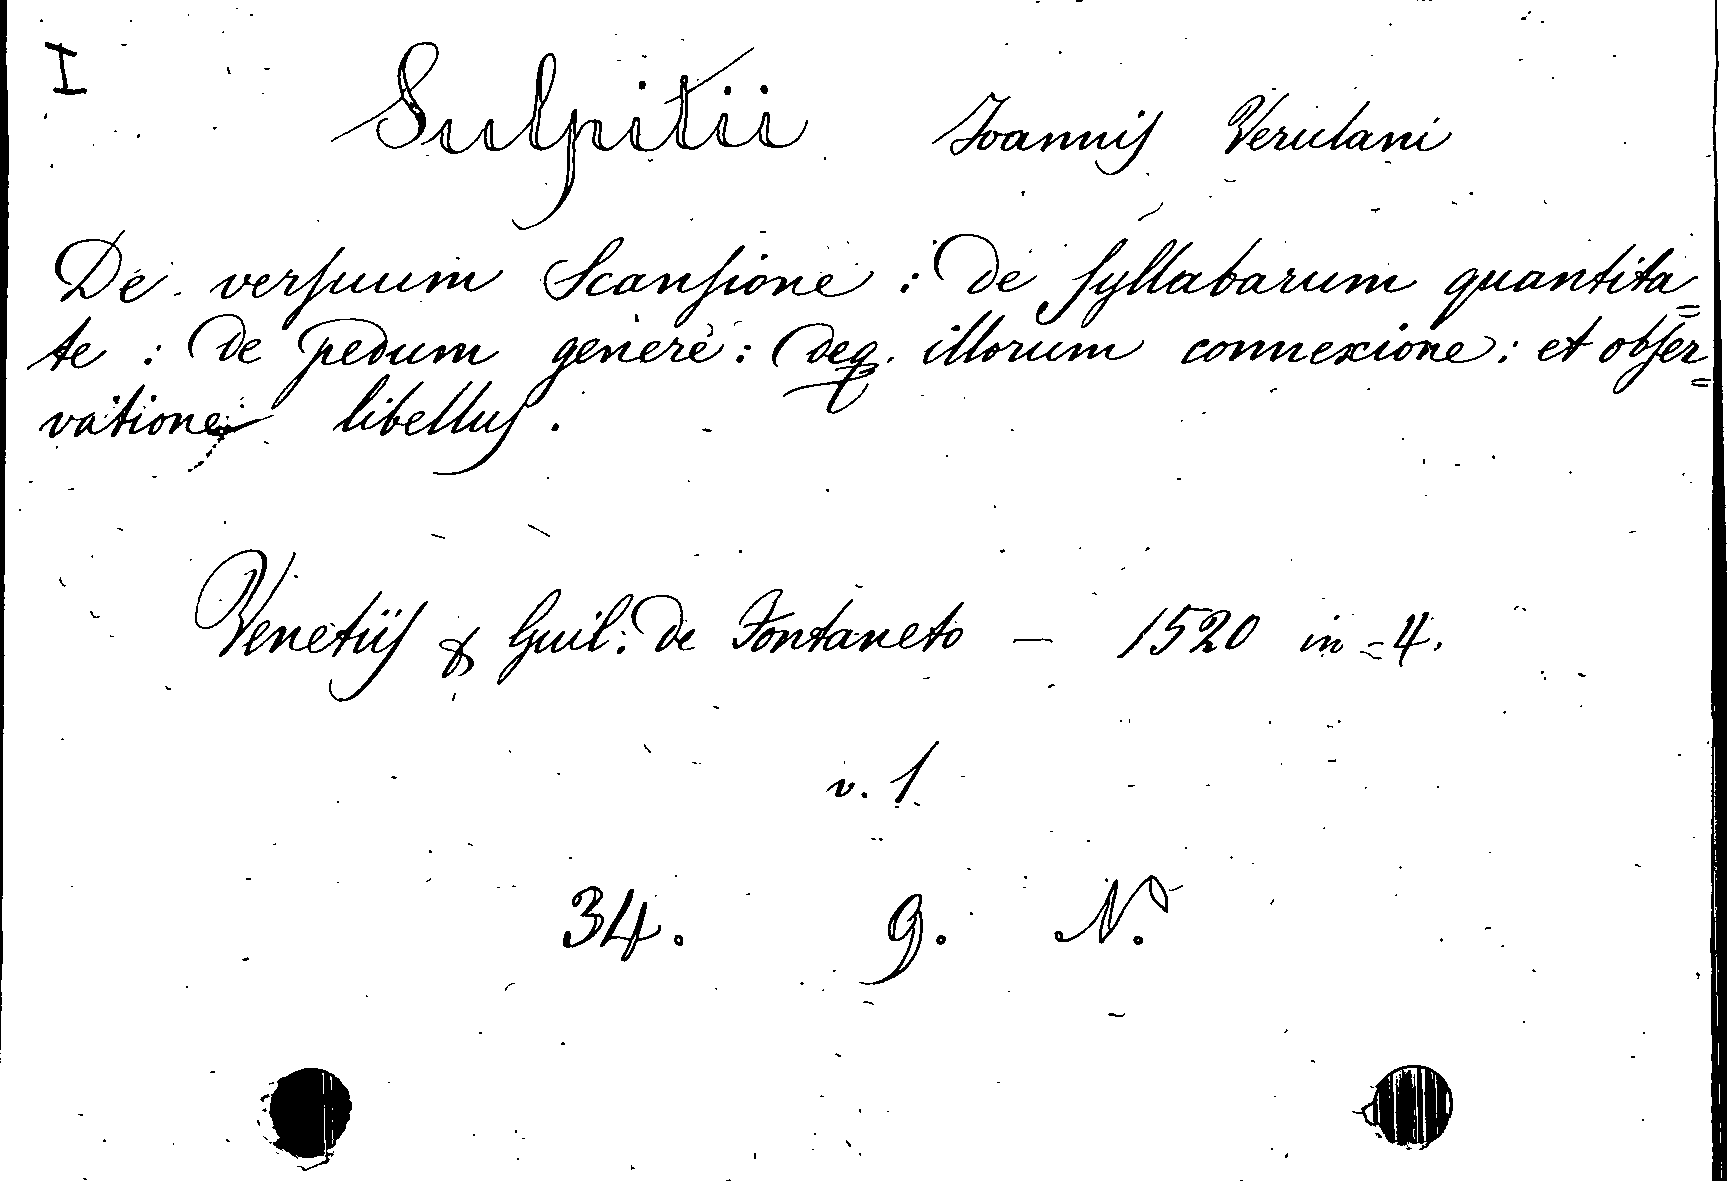 I
Sulpitii Joannis Verulani
De versuum Scansione : de syllabarum quantita=
te : de pedum genere : deq. illorum connexione : et obser=
vatione libellus .
Venetiis & Guil: de Fontaneto — 1520 in=4.
v. 1.
34. 9. N.